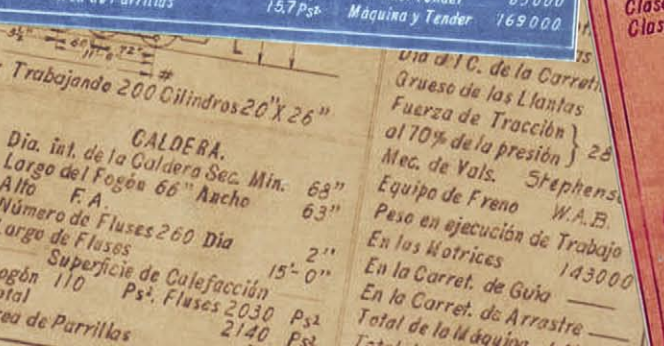 15.7 Ps²
Máquina y Tender 169000
Clas
Trabajando 200 Cilindros 20"X 26"
CALDERA.
Dia. int. de la Caldera Sec. Min. 68"
Largo del Fogón 66" Ancho 63"
Alto F. A.
Número de Fluses 260 Dia 2"
Largo de Fluses 15'-0"
Superficie de Calefacción
110 Ps². Fluses 2030 Ps²
2140 Ps²
de Parrillas
C. de la
Grueso de las Llantas
Fuerza de Tracción
al 70% de la presión } 28
Mec. de Vals. Stephens
Equipo de Freno W.A.B.
Peso en ejecución de Trabajo
En las Motrices 143000
En la Carret. de Guia
En la Carret. de Arrastre
Total de la